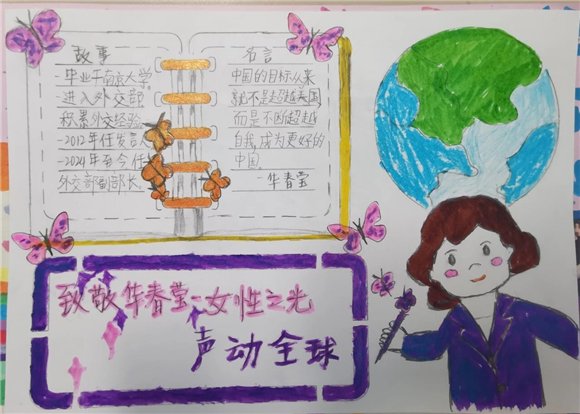 故事
-毕业于南京大学
进入外交部,
积累外交经验
-2012年任发言人
-2024年至今任
外交部副部长。
名言
中国的目标从来
就不是超越美国
而是不断超越
自我,成为更好的
中国
-华春莹
致敬华春莹-女性之光
声动全球